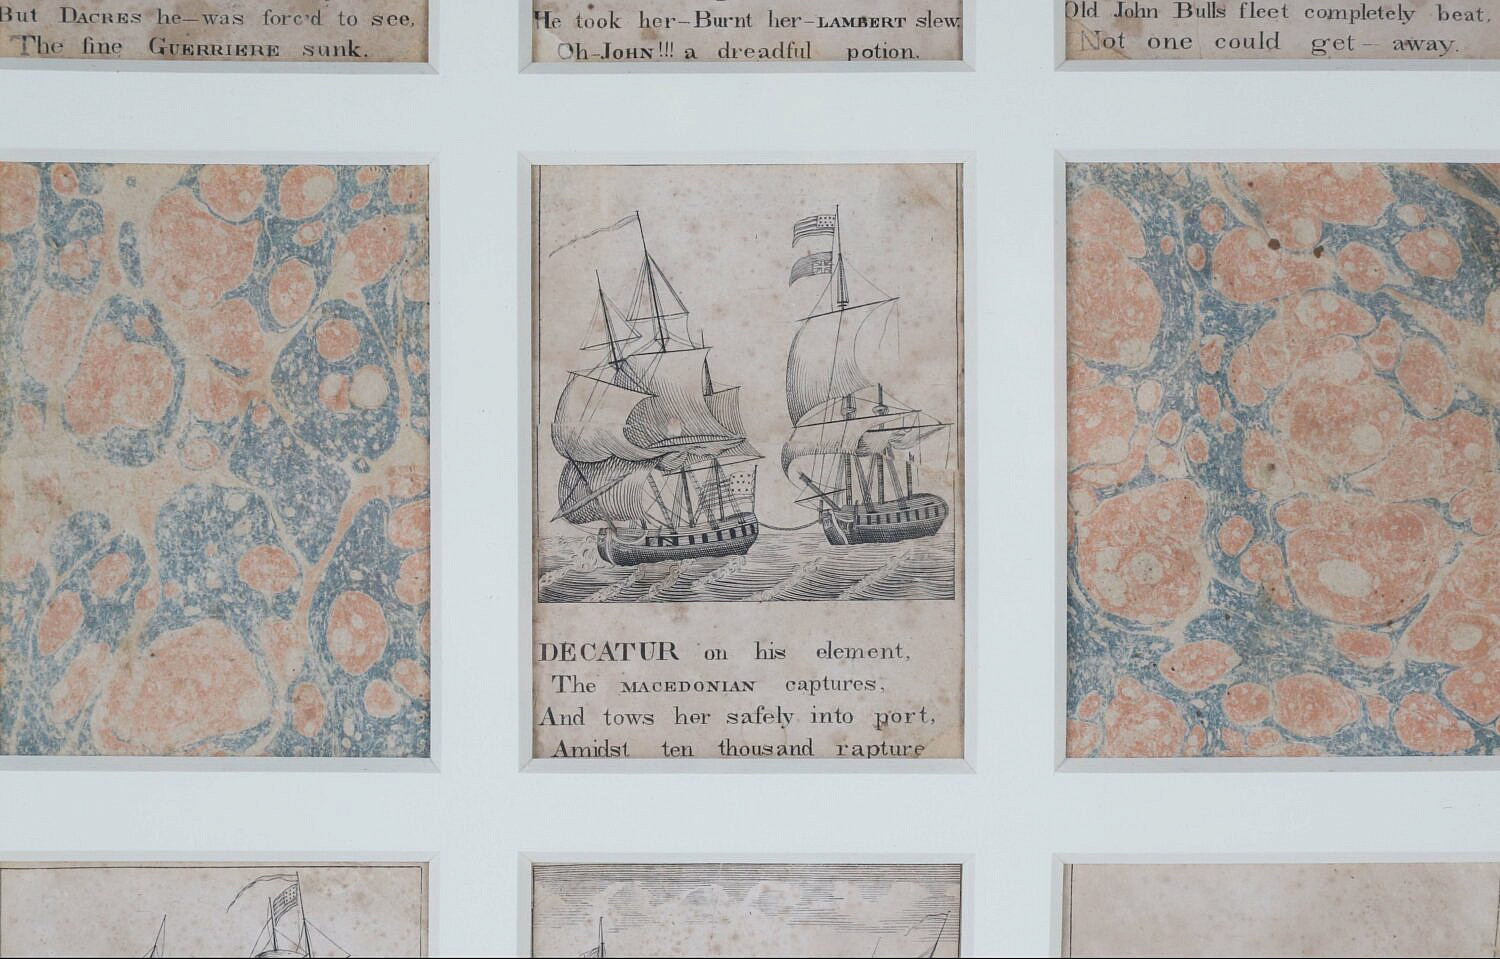 But DACRES he—was forc'd to see,
The fine GUERRIERE sunk.
He took her—Burnt her—LAMBERT slew.
Oh-JOHN!!! a dreadful potion.
Old John Bulls fleet completely beat,
Not one could get— away.
DECATUR on his element,
The MACEDONIAN captures,
And tows her safely into port,
Amidst ten thousand rapture